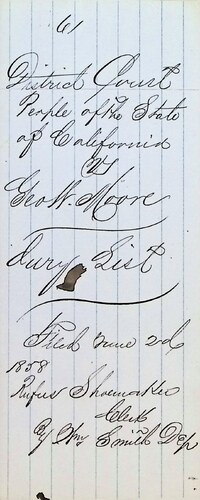 61
District Court
People of the State
of California
vs
Geo W. Moore
Jury List
Filed June 2d
1858
Rufus Shoemaker
Clerk
By Wm Smith Dep